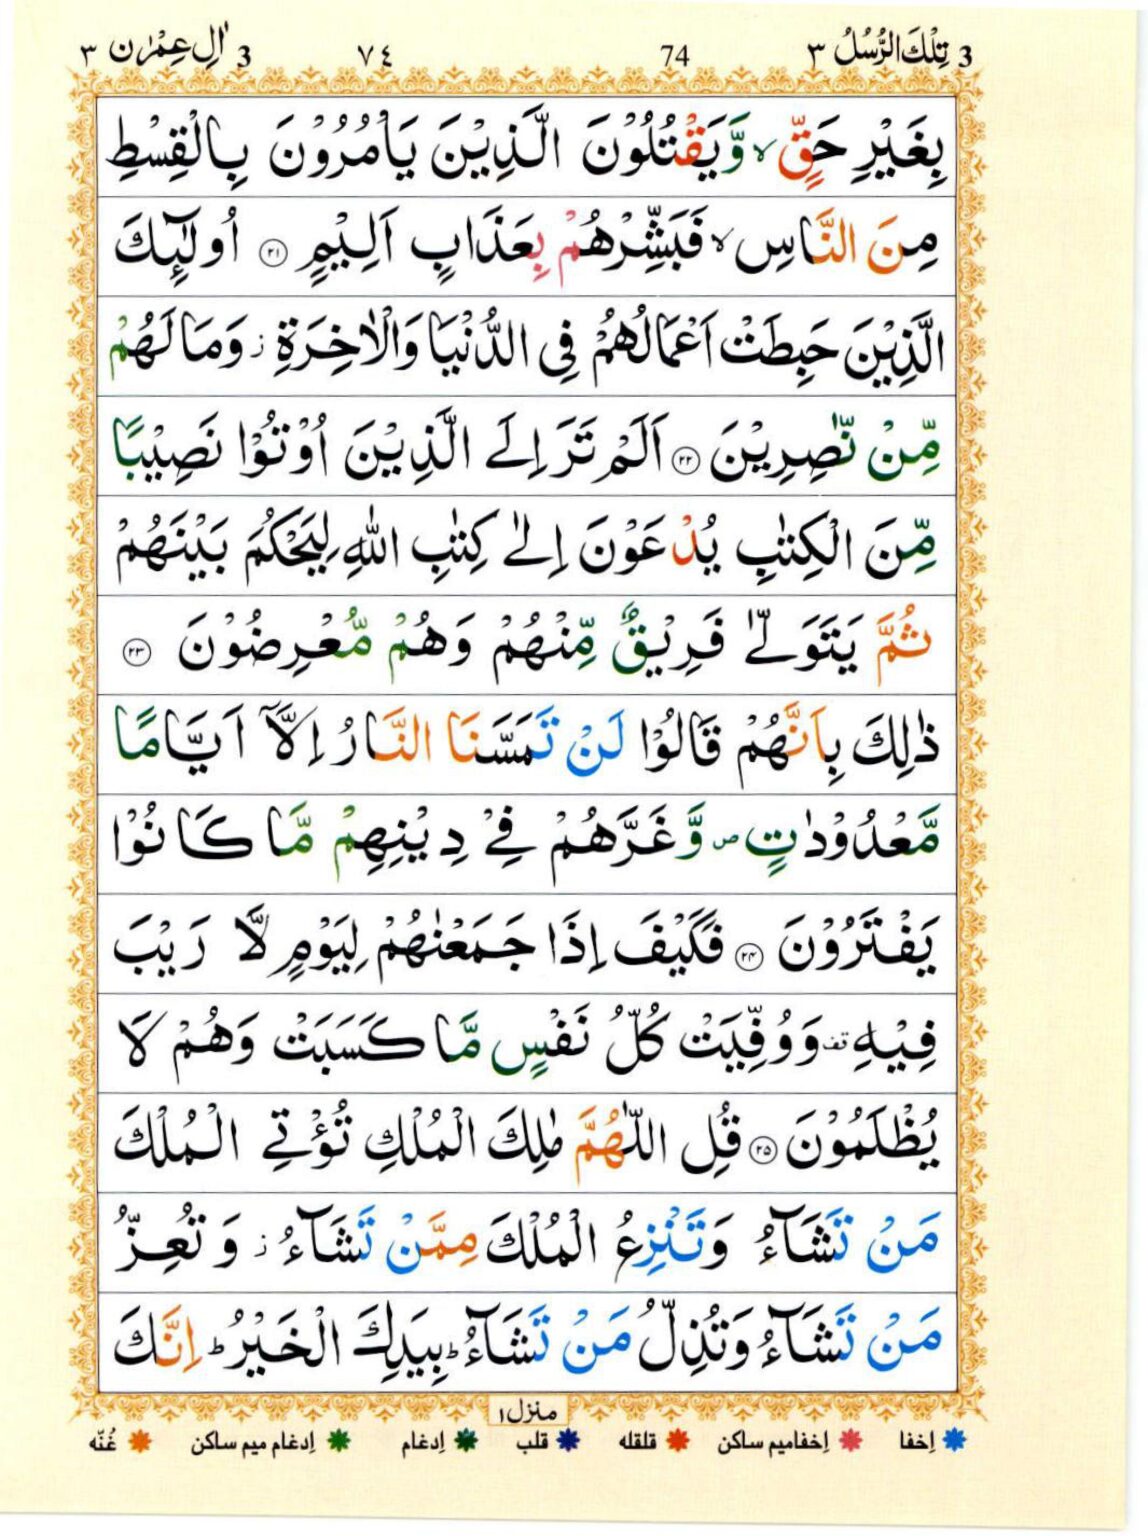 3 تِلْكَ الرُّسُلُ ٣ 74 ٧٤ 3 اٰلِ عِمْرٰن ٣
بِغَيْرِ حَقٍّ ۙ وَّيَقْتُلُوْنَ الَّذِيْنَ يَاْمُرُوْنَ بِالْقِسْطِ
مِنَ النَّاسِ ۙ فَبَشِّرْهُمْ بِعَذَابٍ اَلِيْمٍ ۲۱ اُولٰٓئِكَ
الَّذِيْنَ حَبِطَتْ اَعْمَالُهُمْ فِى الدُّنْيَا وَالْاٰخِرَةِ ز وَمَا لَهُمْ
مِّنْ نّٰصِرِيْنَ ۲۲ اَلَمْ تَرَ اِلَى الَّذِيْنَ اُوْتُوْا نَصِيْبًا
مِّنَ الْكِتٰبِ يُدْعَوْنَ اِلٰى كِتٰبِ اللّٰهِ لِيَحْكُمَ بَيْنَهُمْ
ثُمَّ يَتَوَلّٰى فَرِيْقٌ مِّنْهُمْ وَهُمْ مُّعْرِضُوْنَ ۲۳
ذٰلِكَ بِاَنَّهُمْ قَالُوْا لَنْ تَمَسَّنَا النَّارُ اِلَّآ اَيَّامًا
مَّعْدُوْدٰتٍ ص وَّغَرَّهُمْ فِيْ دِيْنِهِمْ مَّا كَانُوْا
يَفْتَرُوْنَ ۲۴ فَكَيْفَ اِذَا جَمَعْنٰهُمْ لِيَوْمٍ لَّا رَيْبَ
فِيْهِ قف وَوُفِّيَتْ كُلُّ نَفْسٍ مَّا كَسَبَتْ وَهُمْ لَا
يُظْلَمُوْنَ ۲۵ قُلِ اللّٰهُمَّ مٰلِكَ الْمُلْكِ تُؤْتِي الْمُلْكَ
مَنْ تَشَآءُ وَتَنْزِعُ الْمُلْكَ مِمَّنْ تَشَآءُ ز وَتُعِزُّ
مَنْ تَشَآءُ وَتُذِلُّ مَنْ تَشَآءُ ؕ بِيَدِكَ الْخَيْرُ ؕ اِنَّكَ
منزل ۱
اِخفا اِخفا میم ساکن قلقله قلب اِدغام اِدغام میم ساکن غُنّه